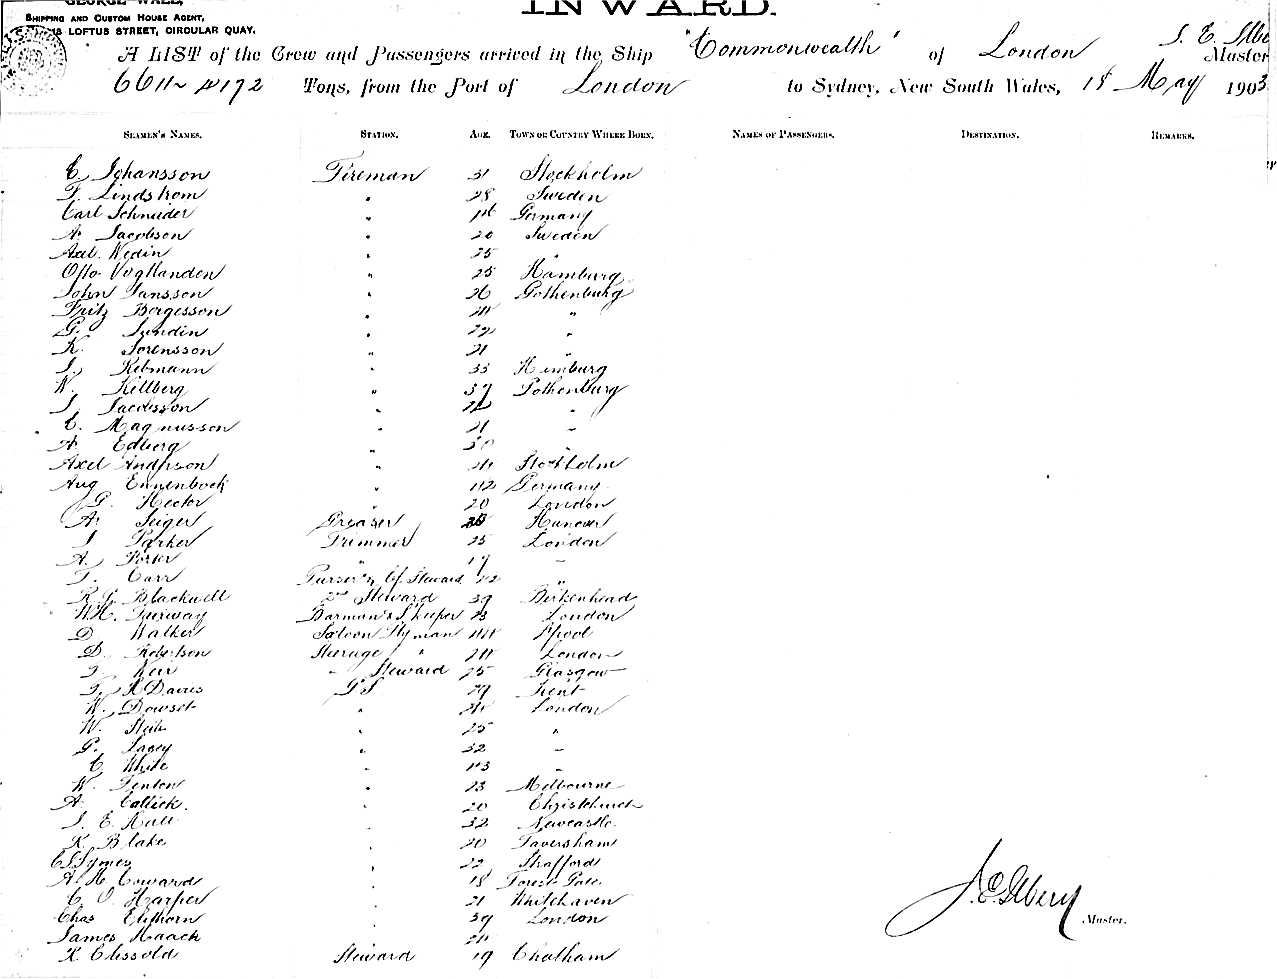 GEORGE WALL,
SHIPPING AND CUSTOM HOUSE AGENT,
LOFTUS STREET, CIRCULAR QUAY.
INWARD.
A LIST of the Crew and Passengers arrived in the Ship "Commonwealth" of London Master
6611 4172 Tons, from the Port of London to Sydney, New South Wales, 18 May 1903
SEAMEN'S NAMES. STATION. AGE. TOWN OR COUNTRY WHERE BORN. NAMES OF PASSENGERS. DESTINATION. REMARKS.
C. Johansson Fireman 31 Stockholm
F. Lindstrom " 28 Sweden
Carl Schneider " Germany
A. Jacobson " 20 Sweden
Axel Wedin " 25 "
Otto Voghanden " 25 Hamburg
John Jansson " 26 Gothenburg
Fritz Borgesson " "
G. Lundin " 22 "
K. Sorensson " 21 "
J. Rebmann " 33 Hamburg
W. Kellberg " 37 Gothenburg
J. Jacobsson " "
C. Magnusson " 21 "
A. Edberg " 30 "
Axel Anderson " 24 Stockholm
Aug Ennenbock " 42 Germany
G. Hector " 20 London
A. Geiger Greaser Hanover
J Parker Trimmer 25 London
A. Porter " 19 "
T. Carr Purser & Cf Steward 22 "
R. J. Blackwell 2nd Steward 39 Birkenhead
W.H. Fairway Barman & S'keeper 23 London
D Walker Saloon P'tyman 44 L'pool
D. Robertson Steerage " 24 London
J Keir " Steward 25 Glasgow
F. R Davies G S 29 Kent
W. Dowset " 24 London
W. " 25 "
G. Lacey " 32 "
C White " 43 "
W. Fenton " 23 Melbourne
A Callick. " 20 Christchurch
J. E. Hall " 32 Newcastle.
K. Blake " 20 Faversham
C S Symes " 22 Strafford
A. H Coward " 18 Forest Gate.
C. J Harper " 21 Whitehaven
Chas Elphorn " 39 London
James Haack " 24
K. Clissold Steward 19 Chatham
Master.